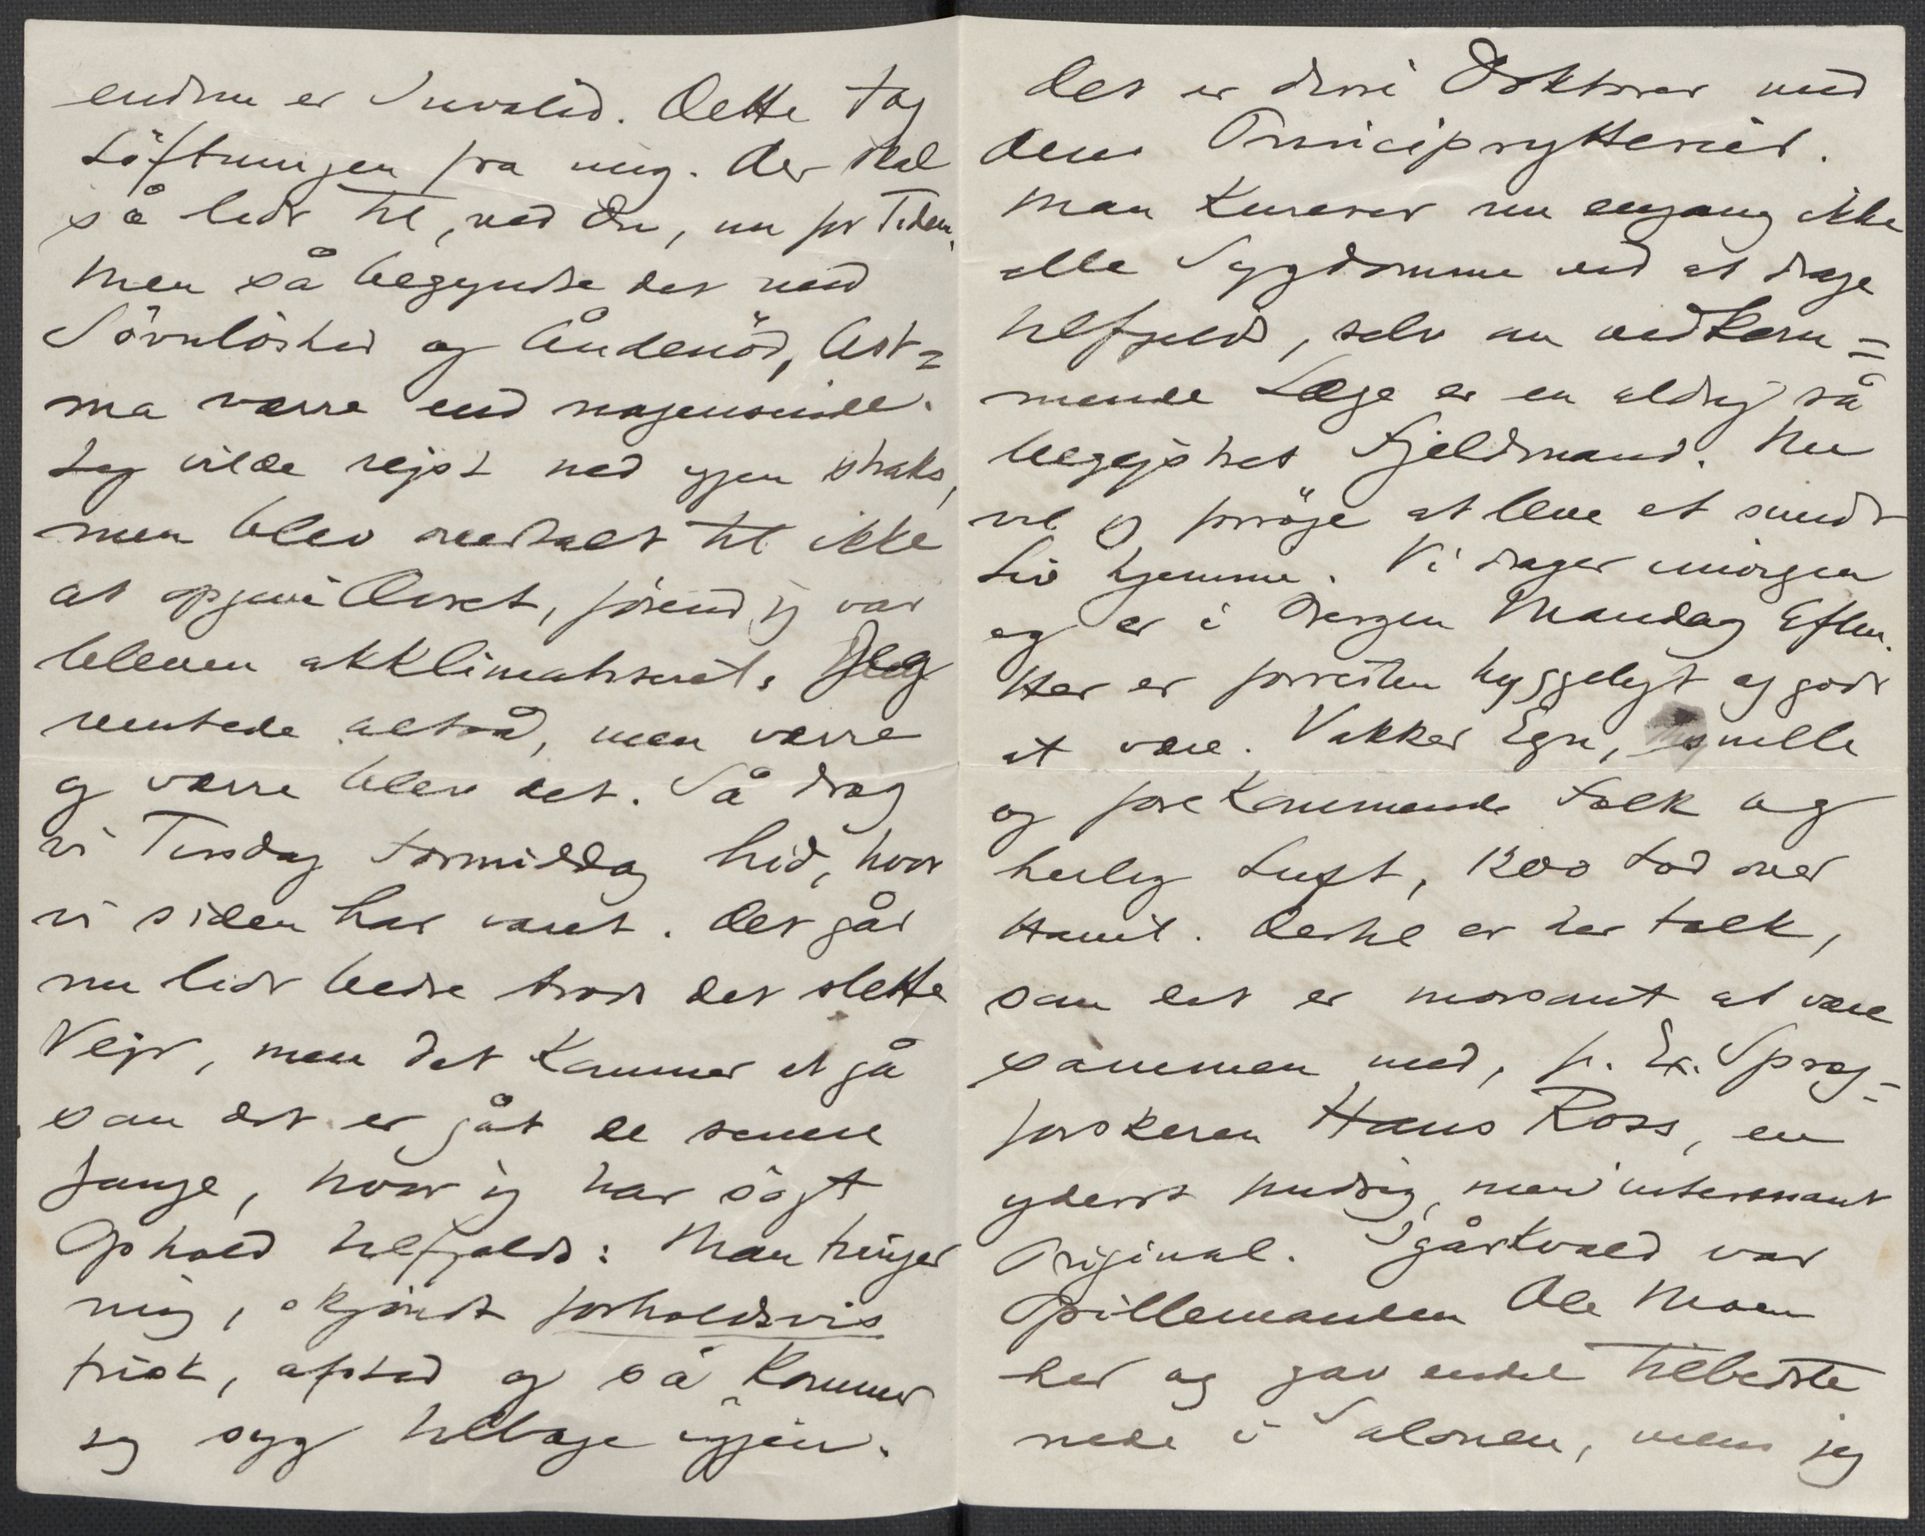 endnu er Invalid. Dette tog
Löftningen fra mig. Der skal
så lidt til, ved Du, nu for Tiden.
Men så begyndte det med
Sövnlöshed og Åndenöd, Ast=
ma værre end nogensinde.
Jeg vilde rejst ned igjen straks,
men blev overtalt til ikke
at opgive Ævret, förend jeg var
bleven akklimatiseret. Jeg
ventede altså, men værre
og værre blev det. Så drog
vi Tirsdag Formiddag hid, hvor
vi siden har været. Det går
nu lidt bedre trods det slette
Vejr, men det kommer at gå
som det er gåt de senere
Gange, hvor jeg har sögt
Ophold tilfjelds: Man tvinger
mig, skjöndt forholdsvis
frisk, afsted og så kommer
jeg syg tilbage igjen.
Det er disse Doktorer med
deres Principrytteried.
Man kurerer nu engang ikke
alle Sygdomme ved at drage
tilfjelds, selv om vedkom=
mende Læge er en aldrig så
begejstret Fjeldmand. Nu
vil jeg forsöge at leve et sundt
Liv hjemme. Vi drager imorgen
og er i Bergen Mandag Efterm.
Her er forresten hyggeligt og godt
at være. Vakker Egn, snille
og forekommende Folk og
herlig Luft, 1200 Fod over
Havet. Dertil er her Folk,
som det er morsomt at være
sammen med, f. Ex. Sprog=
forskeren Hans Ross, en
yderst pudsig, men interessant
Original. Igårkvæld var
Spillemanden Ole Moen
her og gav endel tilbedste
nede i Salonen, mens jeg